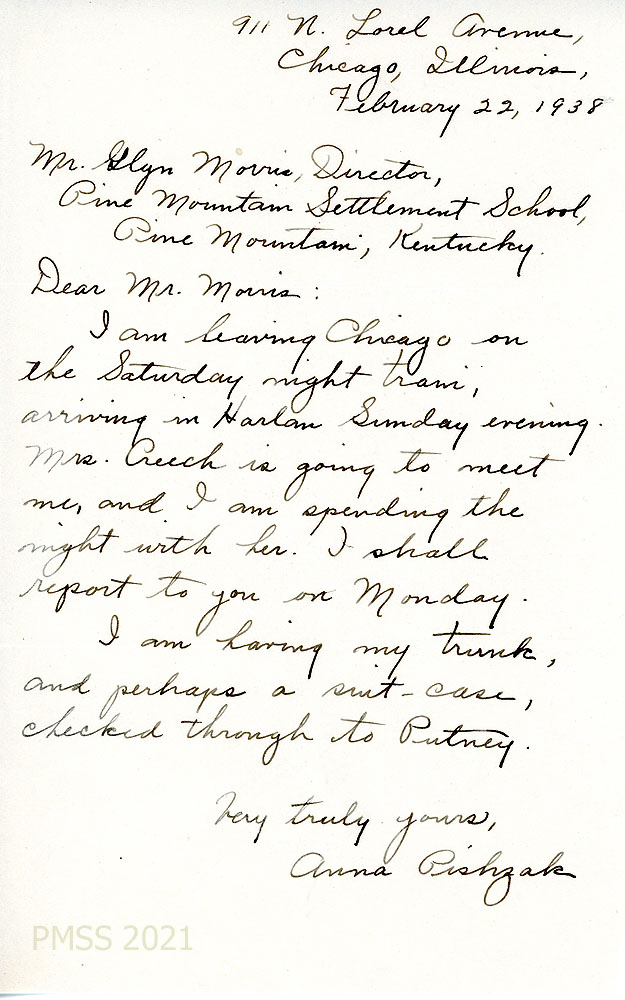 911 N. Lorel Avenue,
Chicago, Illinois,
February 22, 1938
Mr. Glyn Morris, Director,
Pine Mountain Settlement School,
Pine Mountain, Kentucky.
Dear Mr. Morris:
I am leaving Chicago on
the Saturday night train,
arriving in Harlan Sunday evening.
Mrs. Creech is going to meet
me, and I am spending the
night with her. I shall
report to you on Monday.
I am having my trunk,
and perhaps a suit-case,
checked through to Putney.
Very truly yours,
Anna Pishzak
PMSS 2021